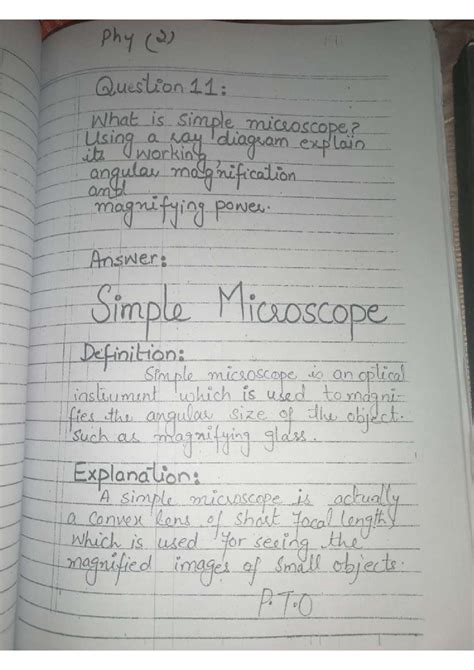 Phy (2)
Question 11:
What is simple microscope?
Using a ray diagram explain
its working,
angular magnification
and
magnifying power.
Answer:
Simple Microscope
Definition:
Simple microscope is an optical
instrument which is used to magni-
fies the angular size of the object.
Such as magnifying glass.
Explanation:
A simple microscope is actually
a convex lens of short focal length
which is used for seeing the
magnified images of small objects.
P.T.O